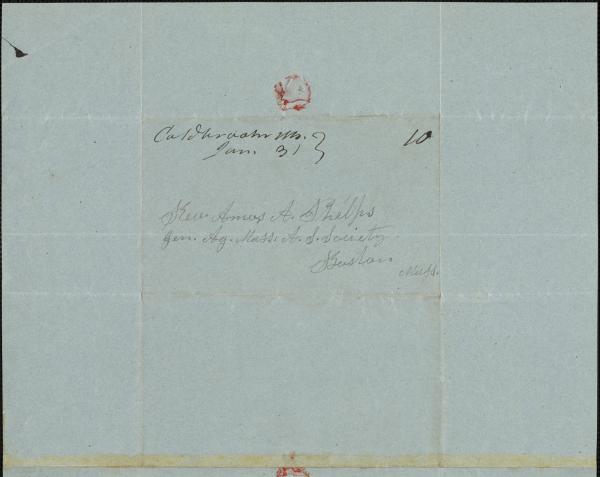 Coldbrook Ms. } 10
Jan. 31
Rev. Amos A. Phelps
Gen. Ag. Mass. A. S. Society
Boston
Mass.